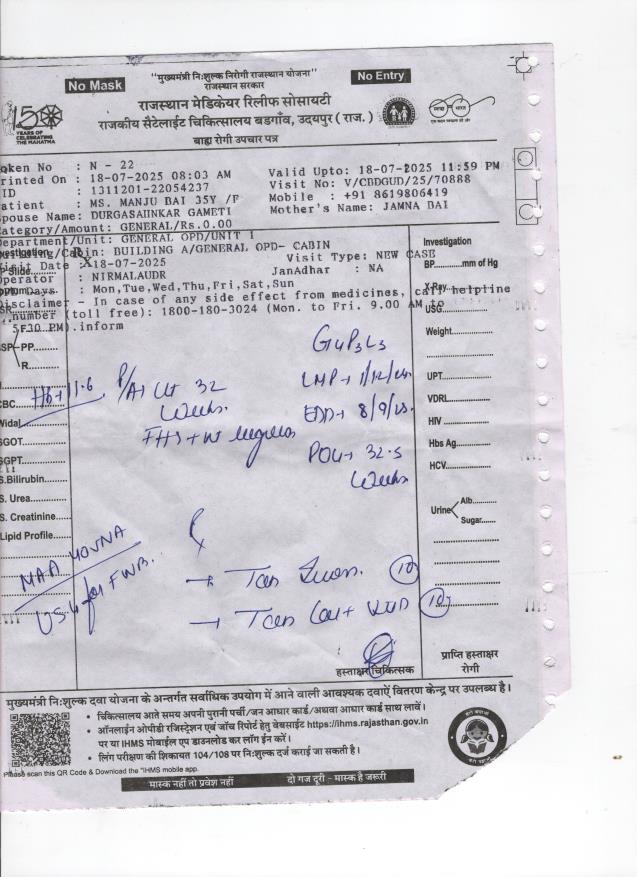 No Mask
"मुख्यमंत्री निःशुल्क निरोगी राजस्थान योजना"
No Entry
राजस्थान सरकार
राजस्थान मेडिकेयर रिलीफ सोसायटी
राजकीय सैटेलाईट चिकित्सालय बडगाँव, उदयपुर ( राज. )
बाह्य रोगी उपचार पत्र
150
YEARS OF
CELEBRATING
THE MAHATMA
oken No : N - 22
rinted On : 18-07-2025 08:03 AM Valid Upto: 18-07-2025 11:59 PM
ID : 1311201-22054237 Visit No: V/CBDGUD/25/70888
atient : MS. MANJU BAI 35Y /F Mobile : +91 8619806419
Spouse Name: DURGASAHNKAR GAMETI Mother's Name: JAMNA BAI
Category/Amount: GENERAL/Rs.0.00
Department/Unit: GENERAL OPD/UNIT 1
BUILDING A/GENERAL OPD- CABIN
Visit Date : 18-07-2025 Visit Type: NEW CASE
Operator : NIRMALAUDR JanAdhar : NA
Days : Mon,Tue,Wed,Thu,Fri,Sat,Sun
Disclaimer - In case of any side effect from medicines, call helpline
number (toll free): 1800-180-3024 (Mon. to Fri. 9.00 AM to
5:30 PM).inform
Investigation
BP............mm of Hg
X-Ray
USG
Weight
UPT
VDRL
HIV
Hbs Ag
HCV
Urine Alb.
Sugar
PP
R
CBC
Widal
SGOT
SGPT
S.Bilirubin
S. Urea
S. Creatinine
Lipid Profile
Hb+11.6
P/A Ut 32
Weeks.
G4P3L3
LMP+ 1/12/24
EDD+ 8/9/25.
POG+ 32.5
Weeks
MAA YOJNA
USG for FWB.
→ Tab
10
→ Tab
10
हस्ताक्षर चिकित्सक
प्राप्ति हस्ताक्षर
रोगी
मुख्यमंत्री निःशुल्क दवा योजना के अन्तर्गत सर्वाधिक उपयोग में आने वाली आवश्यक दवाऐं वितरण केन्द्र पर उपलब्ध है।
• चिकित्सालय आते समय अपनी पुरानी पर्ची/जन आधार कार्ड/अथवा आधार कार्ड साथ लावें।
• ऑनलाईन ओपीडी रजिस्ट्रेशन एवं जाँच रिपोर्ट हेतु वेबसाईट https://ihms.rajasthan.gov.in
पर या IHMS मोबाईल एप डाउनलोड कर लॉग ईन करें।
• लिंग परीक्षण की शिकायत 104/108 पर निःशुल्क दर्ज कराई जा सकती है।
Please scan this QR Code & Download the "IHMS mobile app.
मास्क नहीं तो प्रवेश नहीं दो गज दूरी - मास्क है जरूरी